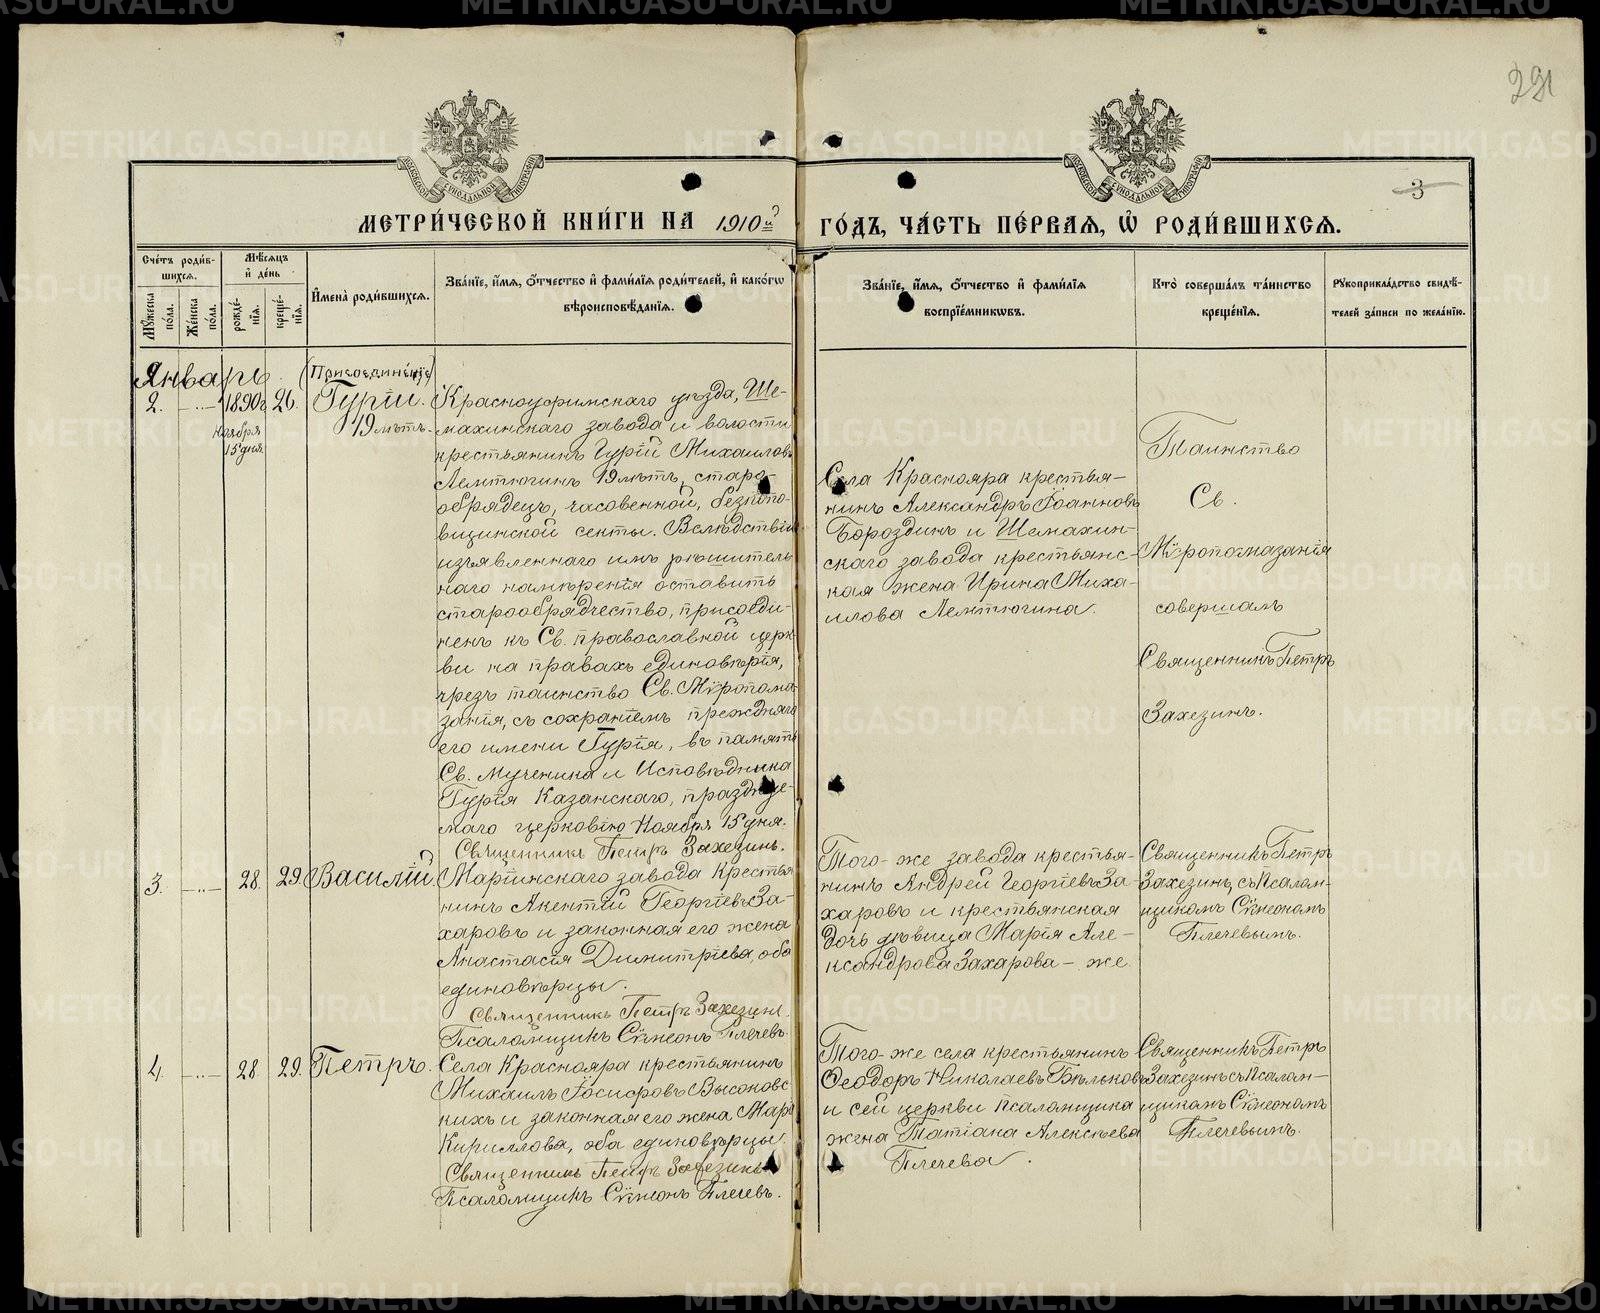 291
3
МЕТРИ́ЧЕСКОЙ КНИ́ГИ НА 1910й
ГО́ДЪ, ЧА́СТЬ ПЕ́РВАЯ, Ѡ҆ РОДИ́ВШИХСѦ.
Сче́тъ роди́в-
шихсѧ.
Мꙋ́жеска по́ла.
Же́нска по́ла.
Мѣ́сѧцъ
и҆ де́нь
рожде́-
нїѧ.
креще́-
нїѧ.
И҆мена̀ роди́вшихсѧ.
Зва́нїе, и҆́мѧ, ѻ҆́тчество и҆ фами́лїѧ роди́телей, и҆ како́гѡ
вѣроисповѣ́данїѧ.
Зва́нїе, и҆́мѧ, ѻ҆́тчество и҆ фами́лїѧ
воспрїе́мникѡвъ.
Кто̀ соверша́лъ та́инство
креще́нїѧ.
Рꙋкоприкла́дство свидѣ́-
телей за́писи по жела́нїю.
Январь.
2.
1890г.
Ноября
15 дня
26.
(Присоединеніе)
Гурій.
19 лѣтъ.
Красноуфимскаго уѣзда, Ше-
махинскаго завода и волости
крестьянинъ Гурій Михаиловъ
Лемтюгинъ 19 лѣтъ, старо-
обрядецъ, часовенной, безпопо-
вщинской секты. Вслѣдствіи
изъявленнаго имъ рѣшитель
наго намѣренія оставить
старообрядчество, присоеди-
ненъ къ Св. православной церк-
ви на правахъ единовѣрія,
чрезъ таинство Св. Мѵропома-
занія, съ сохраніемъ прежняго
его имени Гурія, въ память
Св. Мученика и Исповѣдника
Гурія Казанскаго, праздуе-
маго церковію Ноября 15 дня.
Священникъ Петръ Захезинъ.
Села Краснояра крестья-
нинъ Александръ Іоанновъ
Бороздинъ и Шемахин-
скаго завода крестьянс-
кая жена Ирина Миха-
илова Лемтюгина.
Таинство
Св.
Мѵропомазанія
совершалъ
Священникъ Петръ
Захезинъ.
3.
28.
29.
Василій.
Маріинскаго завода Крестья
нинъ Акентій Георгіевъ За-
харовъ и законная его жена
Анастасія Димитріева, оба
единовѣрцы.
Священникъ Петръ Захезинъ.
Псаломщикъ Сѵмеонъ Плечевъ.
Того-же завода крестья-
нинъ Андрей Георгіевъ За-
харовъ и крестьянская
дочь дѣвица Марія Але-
ксандрова Захарова - же.
Священникъ Петръ
Захезинъ, съ Псалом-
щикомъ Сѵмеономъ
Плечевымъ.
4.
28
29.
Петръ.
Села Краснояра крестьянинъ
Михаилъ Іосифовъ Высоковс
кихъ и законная его жена Марія
Кириллова, оба единовѣрцы.
Священникъ Петръ Захезинъ
Псаломщикъ Сѵмеонъ Плечевъ.
Того-же села крестьянинъ
Ѳеодоръ Николаевъ Бѣльковъ
и сей церкви псаломщика
жена Татіана Алексѣева
Плечева.
Священникъ Петръ
Захезинъ съ Псалом-
щикомъ Сѵмеономъ
Плечевымъ.
METRIKI.GASO-URAL.RU